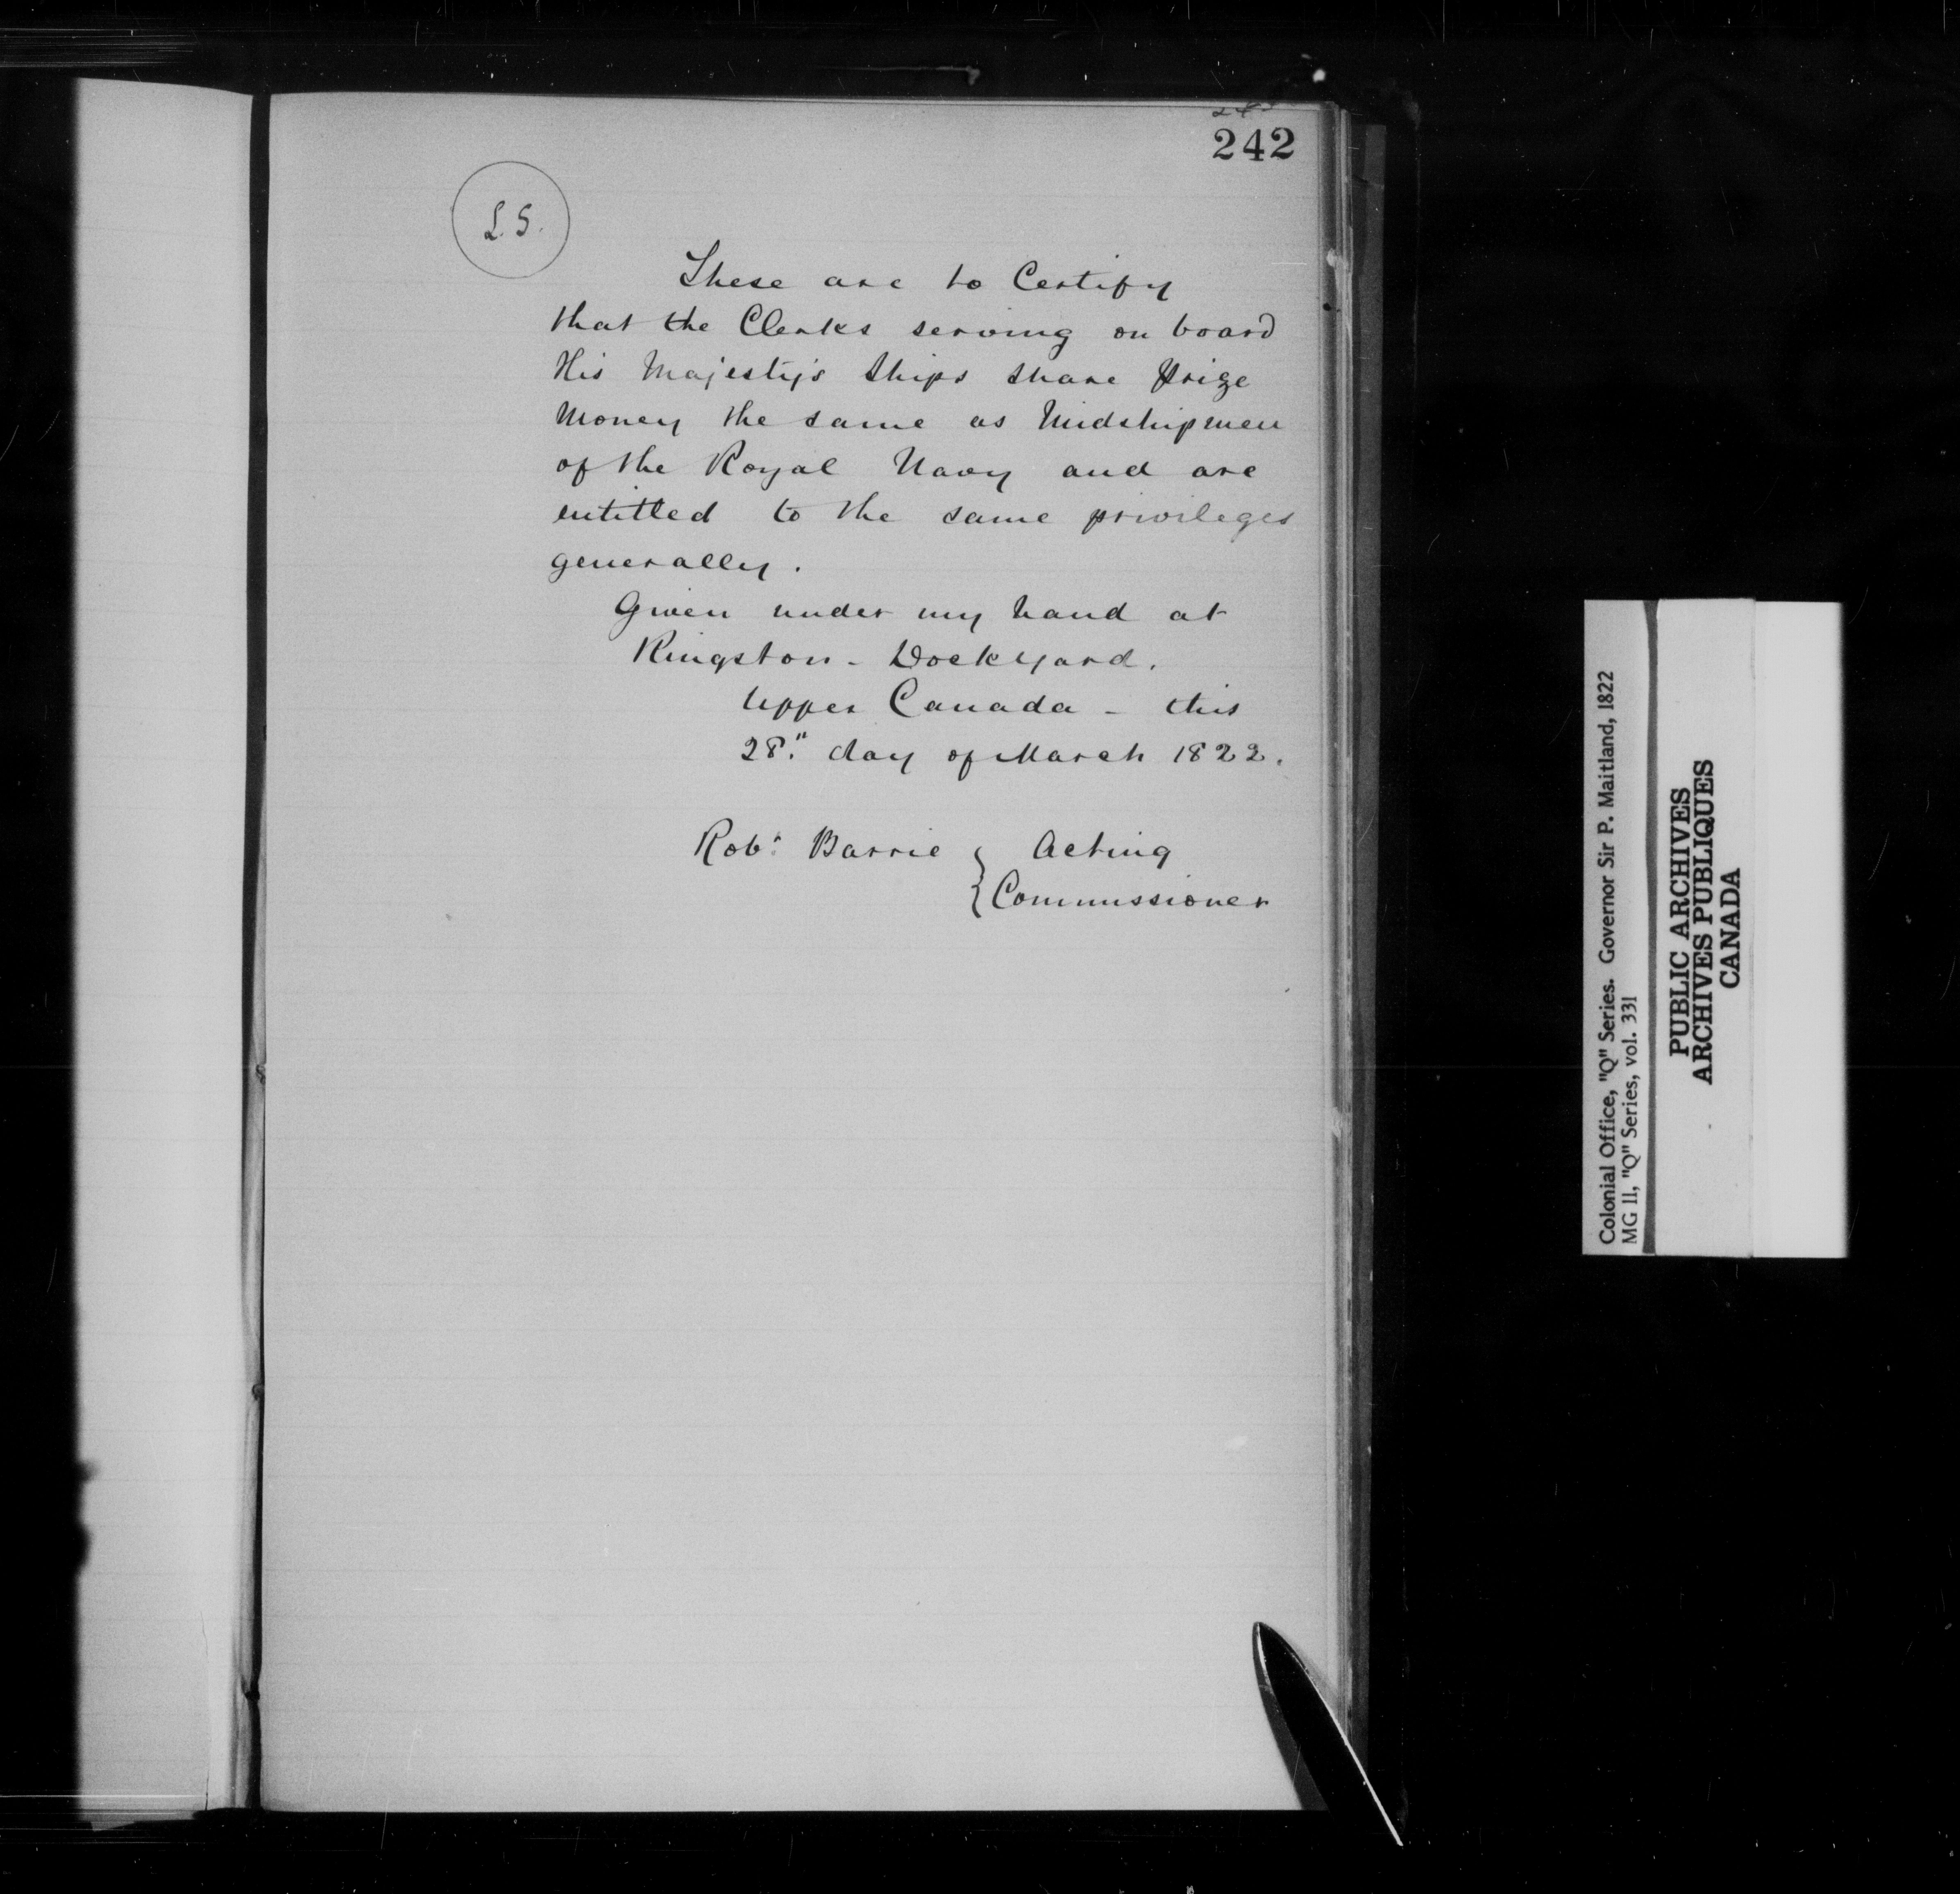 242
L.S.
These are to Certify
that the Clerks serving on board
His Majesty's Ships share Prize
Money the same as Midshipmen
of the Royal Navy and are
entitled to the same privileges
generally.
Given under my hand at
Kingston - Dockyard.
Upper Canada - this
28." day of March 1822.
Robt. Barrie { Acting
{ Commissioner
Colonial Office, "Q" Series. Governor Sir P. Maitland, 1822
MG 11, "Q" Series, vol. 331
PUBLIC ARCHIVES
ARCHIVES PUBLIQUES
CANADA